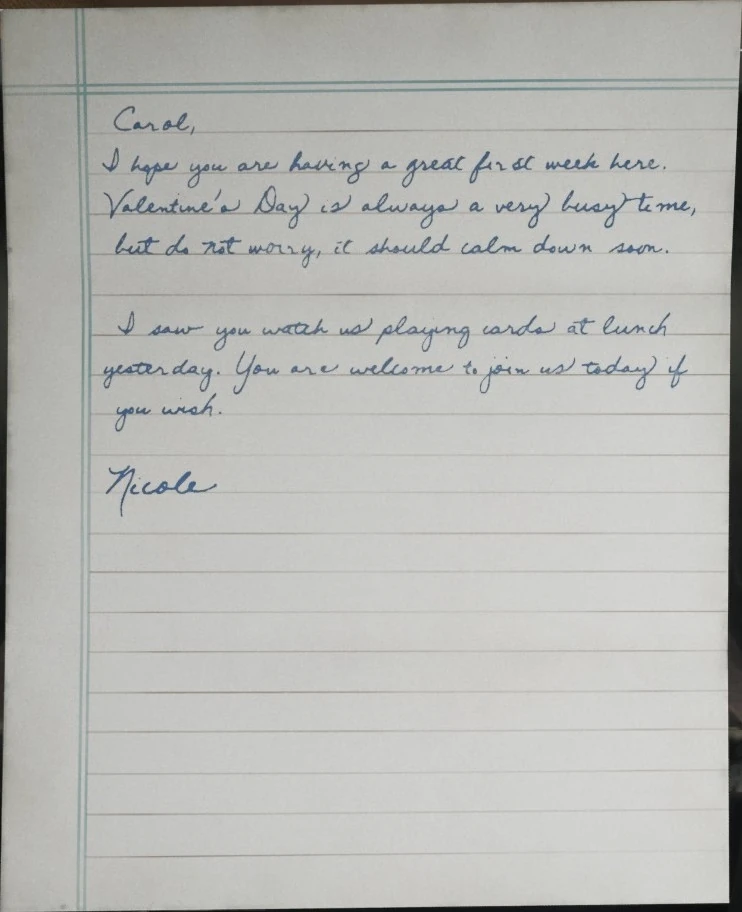 Carol,
I hope you are having a great first week here.
Valentine's Day is always a very busy time,
but do not worry, it should calm down soon.
I saw you watch us playing cards at lunch
yesterday. You are welcome to join us today if
you wish.
Nicole